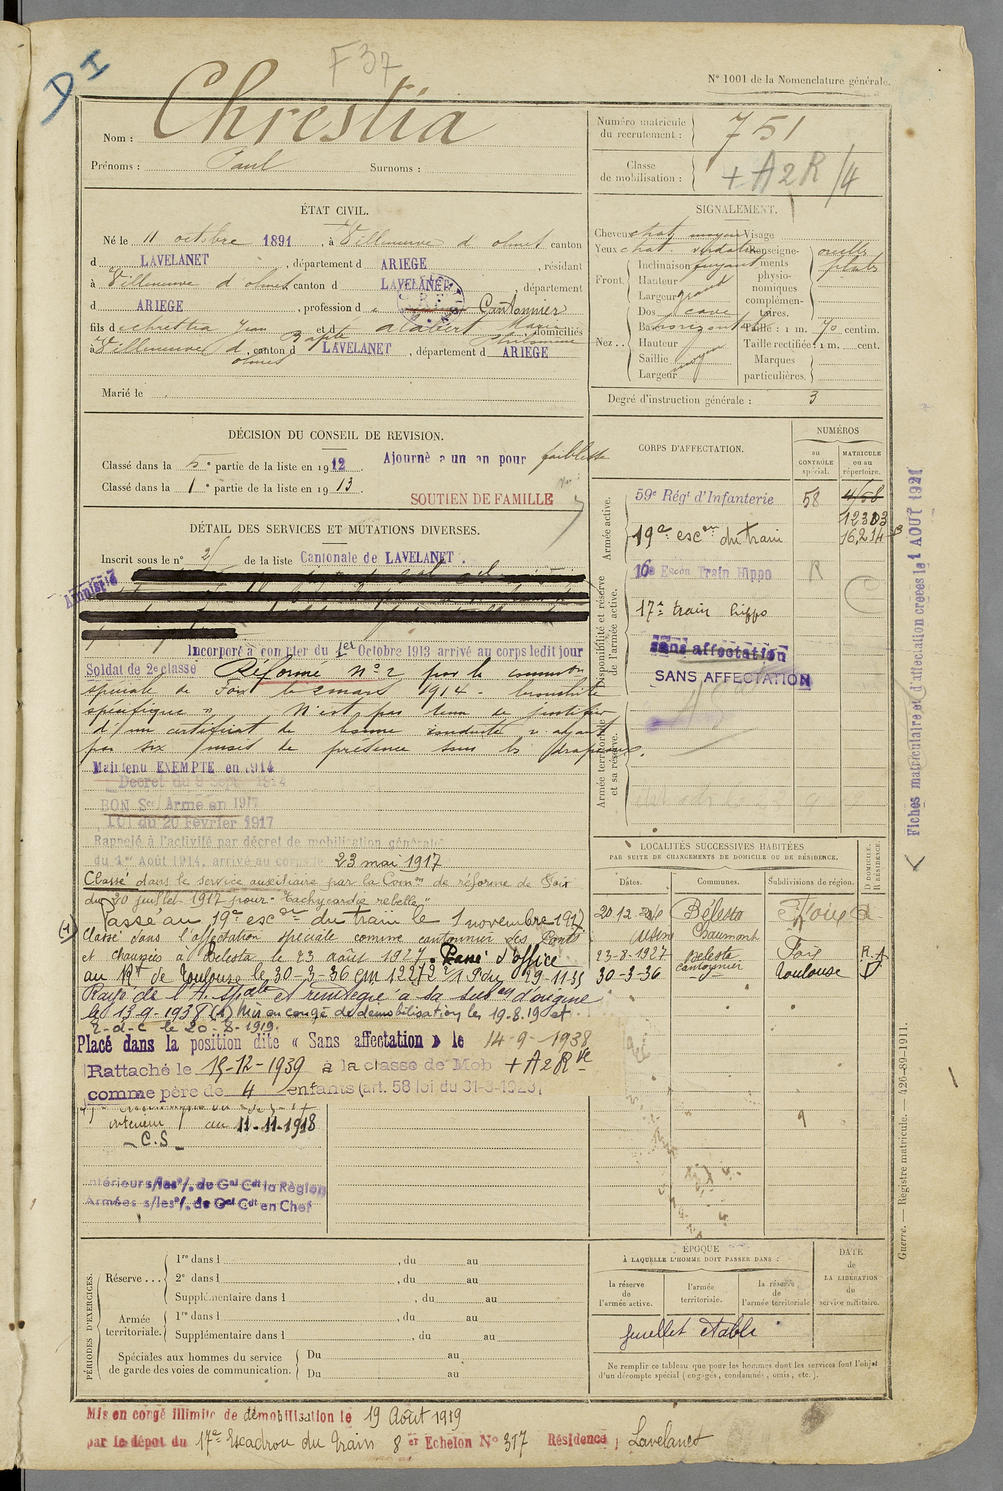 DI
F37
N° 1001 de la Nomenclature générale.
Nom : Chrestia
Prénoms : Paul Surnoms :
Numéro matricule du recrutement : 751
Classe de mobilisation : + A2R/4
ÉTAT CIVIL.
Né le 11 octobre 1891, à Villeneuve d'olmet canton
d LAVELANET, département d ARIEGE, résidant
à Villeneuve d'olmet canton d LAVELANET, département
d ARIEGE, profession d Cantonnier
fils d Chrestia Jean Bapte et d Alabert Marie Philomène domiciliés
à Villeneuve d'olmet, canton d LAVELANET, département d ARIEGE
Marié le
SIGNALEMENT.
Cheveux chat. moyen Visage
Yeux chat. verdâtre Renseignements physionomiques complémentaires. oreilles plates
Front. Inclinaison fuyant
Hauteur
Largeur grand
Nez.. Dos cave
Base horizontale Taille : 1 m. 70 centim.
Hauteur Taille rectifiée 1 m. cent.
Saillie Marques
Largeur moyen particulières.
Degré d'instruction générale : 3
DÉCISION DU CONSEIL DE REVISION.
Classé dans la 5e partie de la liste en 1912. Ajourné a un an pour faiblesse
Classé dans la 1e partie de la liste en 1913
SOUTIEN DE FAMILLE
DÉTAIL DES SERVICES ET MUTATIONS DIVERSES.
Inscrit sous le n° 21 de la liste Cantonale de LAVELANET.
Amnistié
Incorporé à compter du 1er Octobre 1913 arrivé au corps ledit jour
Soldat de 2e classe Réformé N° 2 par la common
spéciale de Foix le 2 mars 1914 - bronchite
spécifique". N'est pas tenu de justifier
d'un certificat de bonne conduite n'ayant
pas six mois de présence sous les drapeaux.
Maintenu EXEMPTÉ en 1914
Décret du 9 Sept 1914
BON Sce Armé en 1917
LOI du 20 Février 1917
Rappelé à l'activité par décret de mobilisation générale
du 1er Août 1914, arrivé au corps le 23 mai 1917
Classé dans le service auxiliaire par la Comon de réforme de Foix
du 30 juillet 1917 pour "tachycardie rebelle"
Passé au 19e escon du train le 1 novembre 1917
(1) Classé dans l'affectation spéciale comme cantonnier des Ponts
et chaussées à Bélesta le 23 août 1927. Passé d'office
au Rt de Toulouse le 30-3-36 Cm 12272 1/9 du 29-11-35
Rayé de l'A. Sple et réintégré à sa subon d'origine
le 13-9-1938 (1) Mis en congé de démobilisation les 19.8.19 et
E-d-C le 20-8-1919.
Placé dans la position dite « Sans affectation » le 14-9-1938
Rattaché le 15-12-1939 à la classe de Mob + A2R
comme père de 4 enfants (art. 58 loi du 31-3-1928)
Intérieur au 11-11-1918
C.S
Intérieurs/les°/. de Gal Cdt la Région
Armées s/les°/. de Gal Cdt en Chef
CORPS D'AFFECTATION.
NUMÉROS
au CONTRÔLE spécial.
MATRICULE ou au répertoire.
Armée active.
59e Régt d'Infanterie 58 4158
12303
19e escon du train 16,214
Disponibilité et réserve de l'armée active.
16e Escon Train Hippo R
17e train hippo
Sans affectation
SANS AFFECTATION
Armée territoriale et sa réserve.
LOCALITÉS SUCCESSIVES HABITÉES
PAR SUITE DE CHANGEMENTS DE DOMICILE OU DE RÉSIDENCE.
Dates. Communes. Subdivisions de région. D DOMICILE. R RÉSIDENCE.
20.12.26 Bélesta Foix R
Chaumont
23-8-1927 Bélesta cantonnier Foix R.
30-3-36 Toulouse D
9
Fiches matriculaire et d'affectation créées le 1 AOUT 1921
Guerre. — Registre matricule. — 426-89-1911.
PÉRIODES D'EXERCICES.
Réserve... 1re dans l , du au
2e dans l , du au
Supplémentaire dans l , du au
Armée territoriale. 1re dans l , du au
Supplémentaire dans l , du au
Spéciales aux hommes du service de garde des voies de communication. Du au
Du au
ÉPOQUE
À LAQUELLE L'HOMME DOIT PASSER DANS :
la réserve de l'armée active.
l'armée territoriale.
la réserve de l'armée territoriale
DATE de LA LIBÉRATION du service militaire.
feuillet établi
Ne remplir ce tableau que pour les hommes dont les services font l'objet d'un décompte spécial (engagés, condamnés, omis, etc.).
Mis en congé illimité de démobilisation le 19 Août 1919
par le dépôt du 17e Escadron du Train 8er Echelon N° 317 Résidence : Lavelanet